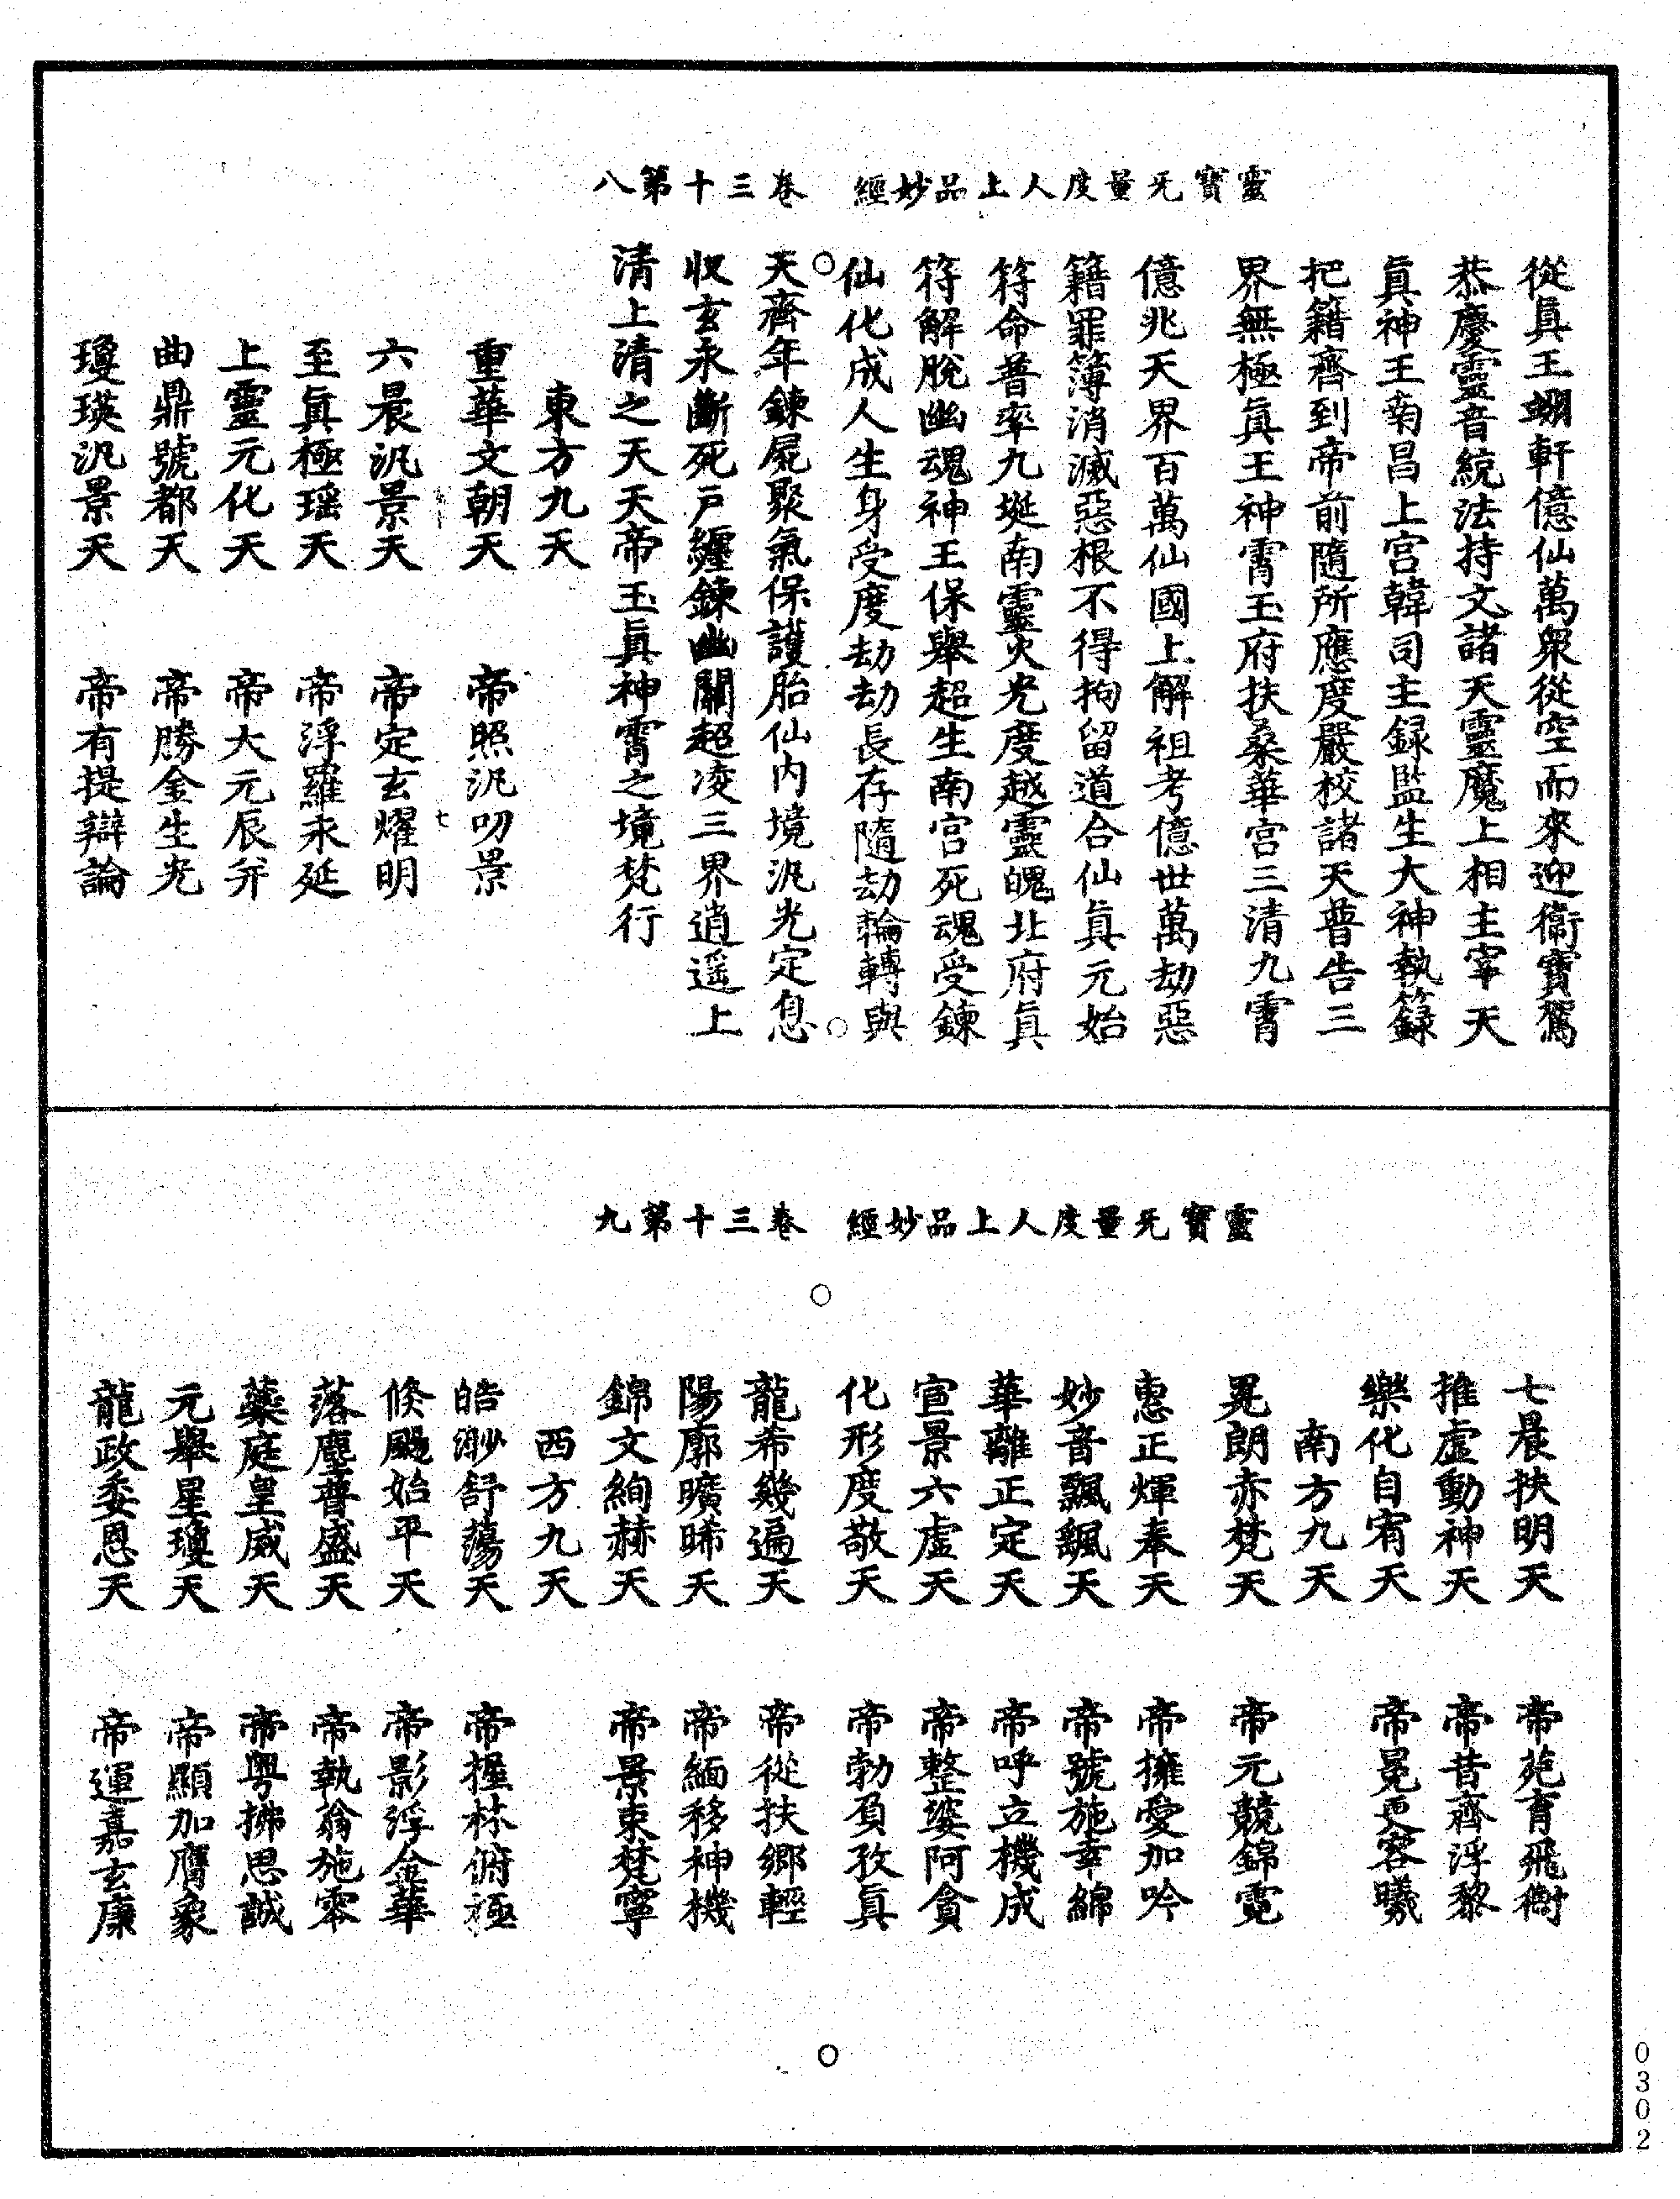 靈寶无量度人上品妙經　卷三十第八
從真王翊軒億仙萬衆從空而來迎衞寶駕
恭慶靈音統法持文諸天靈魔上相主宰天
真神王南昌上宫韓司主録監生大神執籙
把籍齊到帝前隨所應度嚴校諸天普告三
界無極真王神霄玉府扶桑華宫三清九霄
億兆天界百萬仙國上解祖考億世萬劫惡
籍罪簿消滅惡根不得拘留道合仙真元始
符命普率九埏南靈火光度越靈魄北府真
符解脫幽魂神王保舉超生南宫死魂受鍊
仙化成人生身受度劫劫長存隨劫輪轉與
天齊年鍊屍聚氣保護胎仙内境汎光定息
收玄永斷死戶纏鍊幽關超凌三界逍遥上
清上清之天天帝玉真神霄之境梵行
東方九天
重華文朝天　帝照汎叨景
七
六晨汎景天　帝定玄燿明
至真極瑶天　帝浮羅永延
上靈元化天　帝大元辰弁
曲鼎號都天　帝勝金生光
瓊瑛汎景天　帝有提辯論
靈寶无量度人上品妙經　卷三十第九
七晨扶明天　帝菀育飛衡
推虛動神天　帝昔齊浮黎
樂化自宥天　帝冕更容曦
南方九天
晃朗赤梵天　帝元競錦霓
惠正煇奉天　帝擁愛加吟
妙音飄飄天　帝號施幸綿
華離正定天　帝呼立機成
宣景六虛天　帝整婆阿貪
化形度敬天　帝勃負孜真
龍希幾遍天　帝從扶鄉輕
陽廓曠晞天　帝緬移神機
錦文絢赫天　帝景束梵寧
西方九天
皓渺舒蕩天　帝握林俯極
倏颺始平天　帝影浮金華
落塵普盛天　帝執翁施零
蘂庭皇威天　帝粤拂思誠
元舉星瓊天　帝顯加膺象
龍政委恩天　帝運嘉玄康
0302